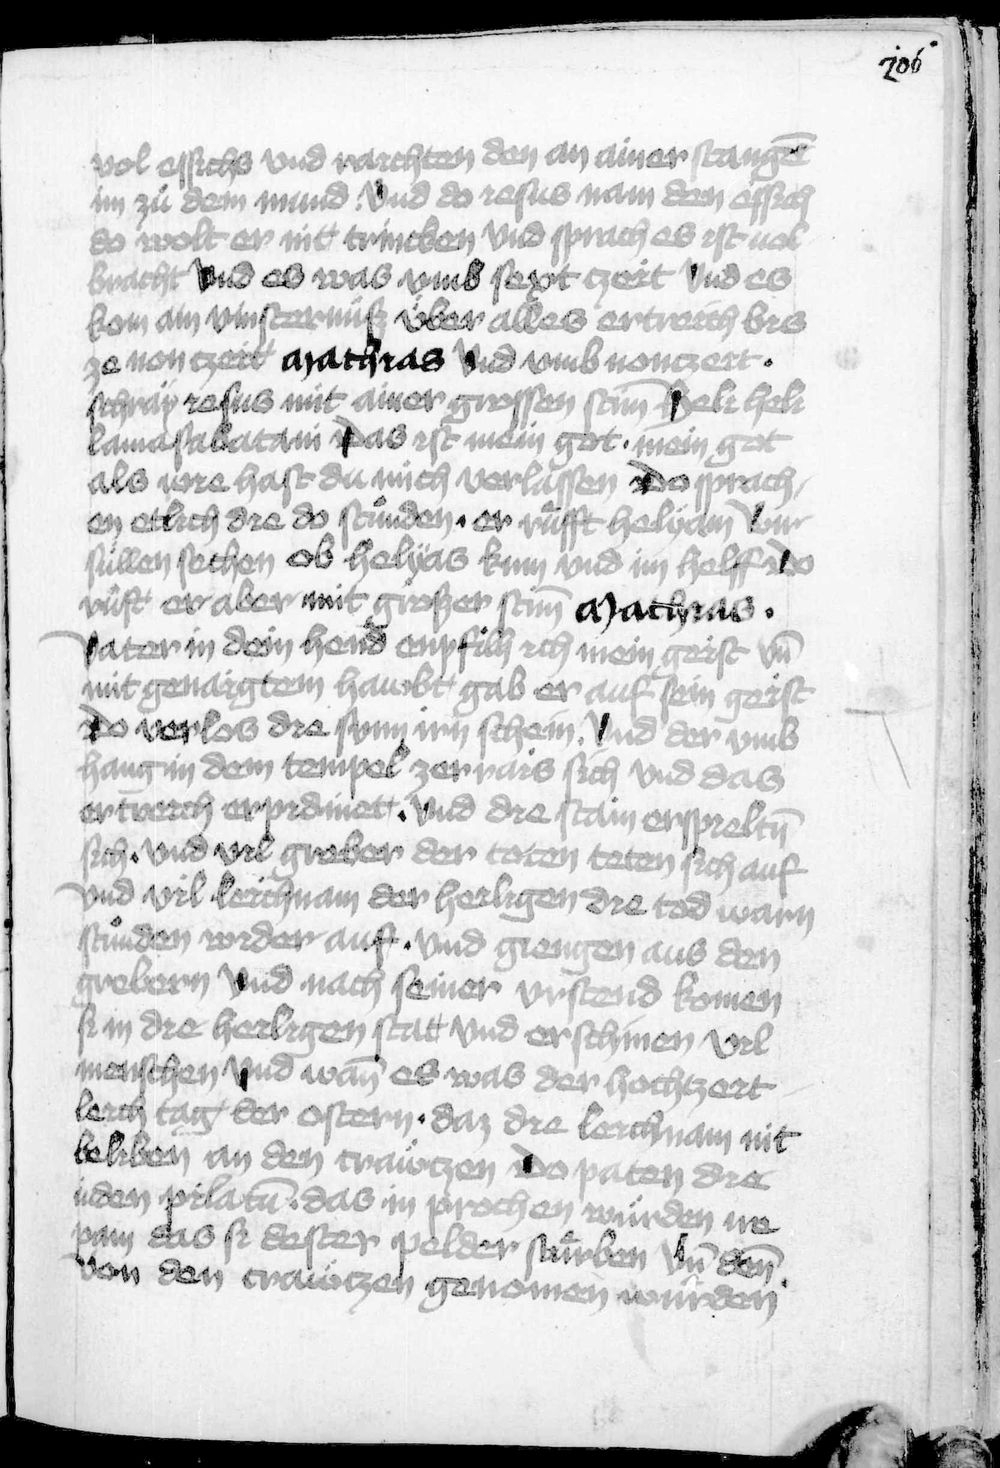 206
vol essichs vnd raichten den an ainer stangē
im zů dem mund. Vnd do iesus nam den essich
do wolt er nit trincken vnd sprach es ist uol
bracht Vnd es was vmb sext tzeit Vnd es
kom ain vinsternüß über alles ertreich bis
ze non tzeit Mathias Vnd vmb nontzeit.
schray iesus mit ainer grossen stim̄ Heli heli
lamasabatani Das ist mein got. mein got
als wie hast du mich verlassen Do sprach,
en etlich die do stůnden. er růfft helyam Wir
süllen sechen ob helyas kum vnd im helff Do
růft er aber mit großer stim̄ Mathias.
Vater in dein hend enpfilh ich mein geist vn̄
mit genaigtem haubt gab er auf sein geist
Do verlos die sunn irn schein. Vnd der vmb
hang in dem tempel zerrais sich vnd das
ertreich erpidmet. Vnd die stain erspieltn̄
sich. Vnd vil greber der toten teten sich auf
Vnd vil leichnam der heiligen die tod warn
stůnden wider auf. Vnd giengen aus den
grebern Vnd nach seiner vrstend komen
si in die heiligen stat Vnd erschinen vil
menschen Vnd wan̄ es was der hochtzeit
leich tag der ostern. daz die leichnam nit
beliben an den crawtzen Do paten die
iuden pilatū. das in prochen würden ire
pain das si dester pelder stůrben Vn̄ den̄
von den crawtzen genomen würden